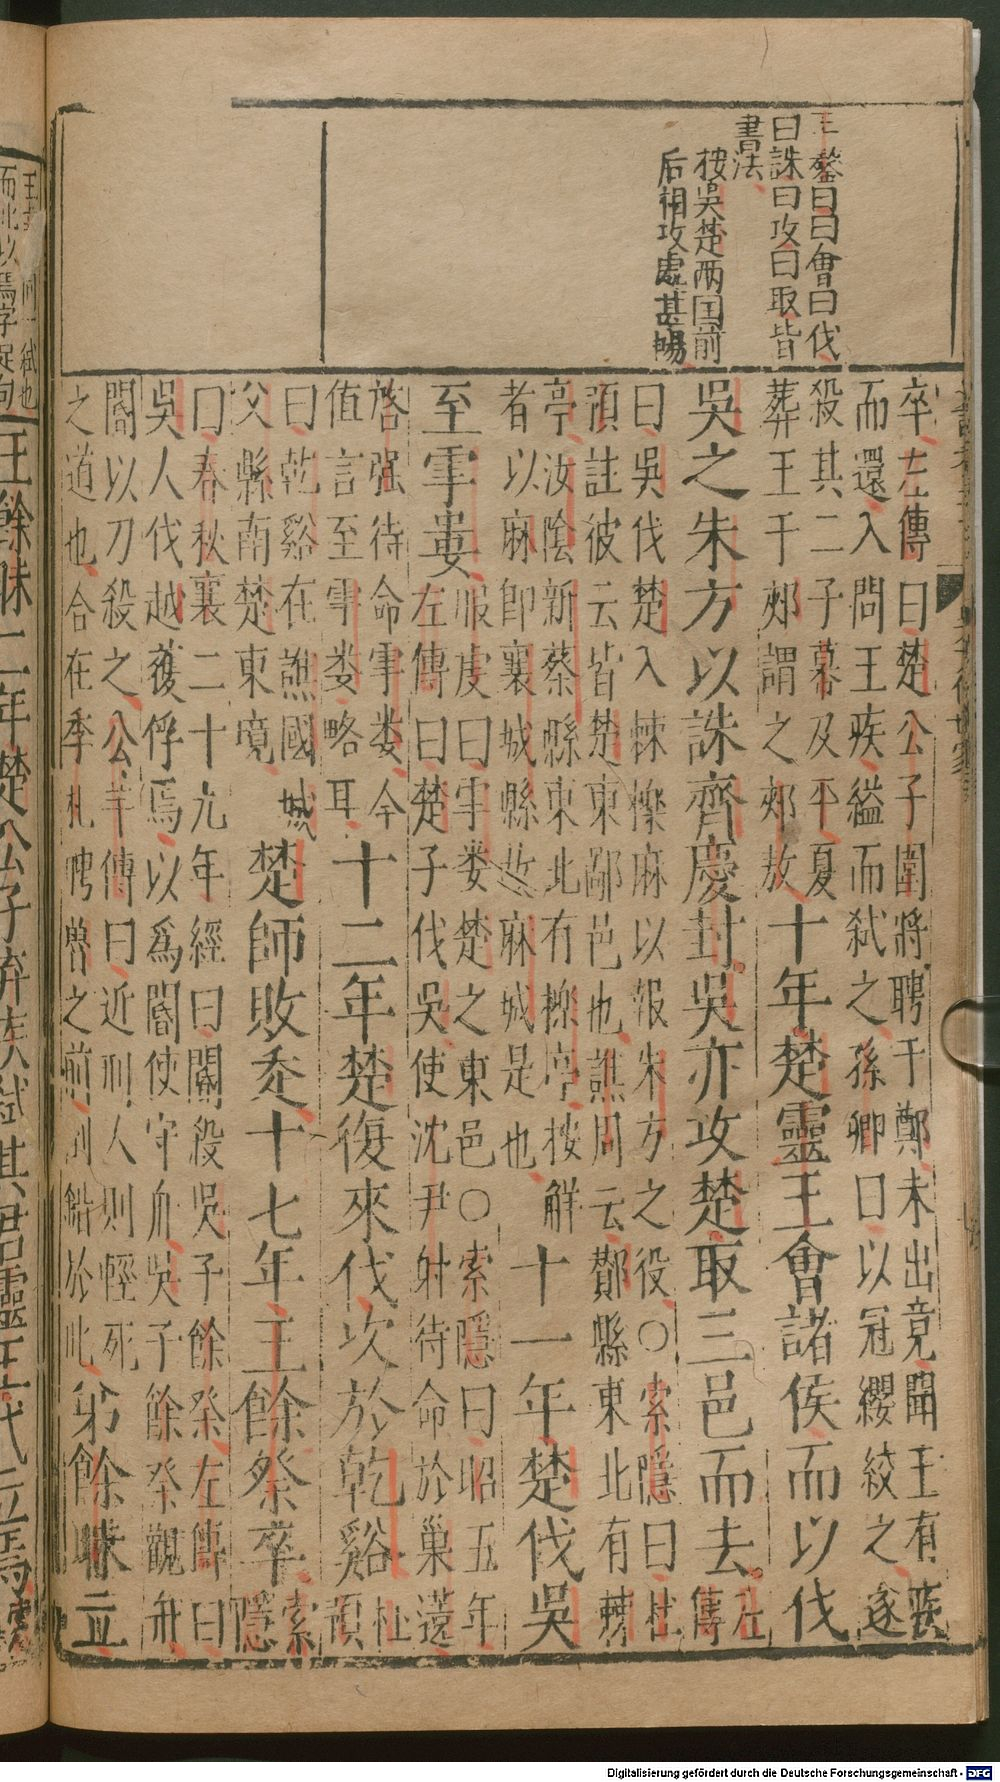 王鏊曰曰會曰伐
曰誅曰攻曰取皆
書法
按吳楚两囯前
后相攻處甚暢
卒左傳曰楚公子圍將聘于鄭未出竟聞王有疾
而還入問王疾縊而弑之孫卿曰以冠纓絞之遂
殺其二子幕及平夏
葬王于郟謂之郟敖
十年楚靈王會諸侯而以伐
吳之朱方以誅齊慶封吳亦攻楚取三邑而去
左
傳
曰吳伐楚入棘櫟麻以報朱方之役○索隱曰杜
預註彼云皆楚東鄙邑也譙周云鄼縣東北有棘
亭汝陰新蔡縣東北有櫟亭按解
者以麻即襄城縣故麻城是也
十一年楚伐吳
至雩婁
服虔曰雩婁楚之東邑○索隱曰昭五年
左傳曰楚子伐吳使沈尹射待命於巢薳
啓强待命雩婁今
值言至雩婁略耳
十二年楚復來伐次於乾谿
杜
預
曰乾谿在譙國城
父縣南楚東境
楚師敗走十七年王餘祭卒
索
隱
曰春秋襄二十九年經曰閽殺吳子餘祭左傳曰
吳人伐越獲俘焉以爲閽使守舟吳子餘祭觀舟
閽以刀殺之公羊傳曰近刑人則輕死
之道也合在季札聘魯之前倒錯於此
弟餘眛立
王餘眛二年楚公子棄疾弑其君靈王代立焉
Digitalisierung gefördert durch die Deutsche Forschungsgemeinschaft - DFG